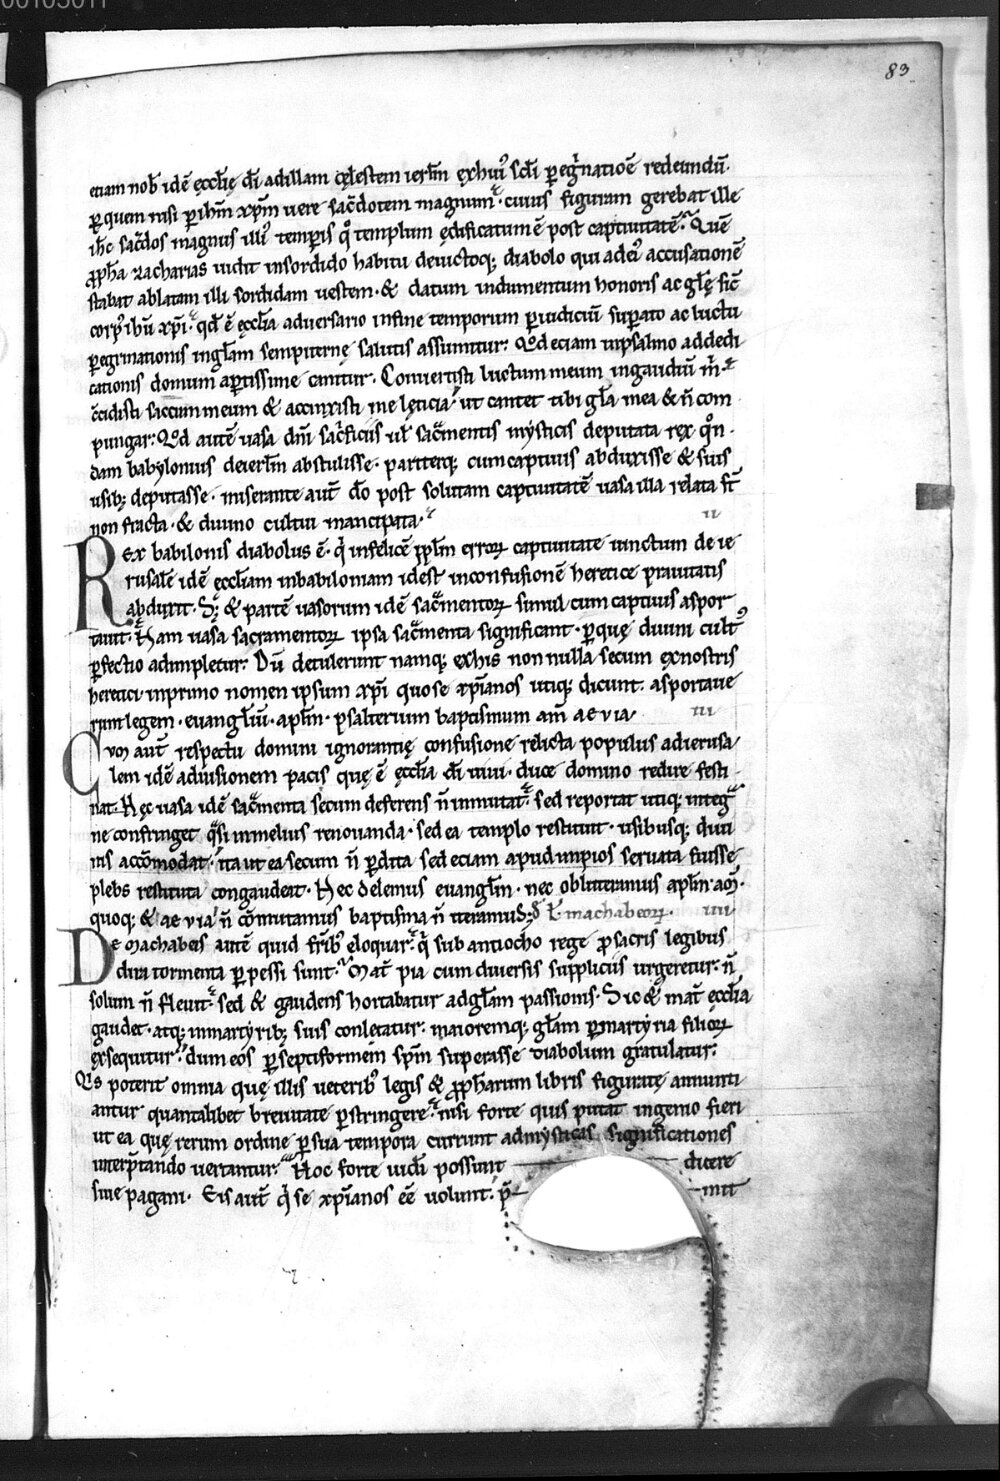 00103011
83
etiam nob̄ idē ęccłię dī ad illam cęlestem ierłm ęx huiꝰ scłi peg̃natioē redeundū.
p quem nisi p ihm̄ xp̄m vere sac̄dotem magnum. cuius figuram gerebat ille
ihc̄ sac̄dos magnus illiꝰ temp̄is qͦ templum ędificatum ē post captiuitatē. Quē
ꝓph̄a zacharias vidit in sordido habitu deuictoq; diabolo qui ad eiꝰ accusationē
stabat ablatam illi sordidam uestem. & datum indumentum honoris ac głę sic̄
corpꝰ ihū xp̄i. qđ ē ęccłia aduersario in fine temporum p iudiciū supato ac luctu
pegrinationis in głam sempiternę salutis assumitur. Qđ eciam in psalmo addedi
cationis domum aptissime canitur. Conuertisti luctum meum in gaudiū m̄
c̄cidisti saccum meum & accinxisti me lęticia ut cantet tibi gła mea & n̄ com
pungar. Qđ autē vasa dn̄i sac̄ficiis uł sac̄mentis mysticis deputata rex qͦn
dam babylonius de ierłm abstulisse. partterq; cum captiuis abduxisse & suis
usib; deputasse. miserante aut̄ dō post solutam captiuitatē vasa illa relata st̄
non fracta. & diuino cultui mancipata. ii
Rex babilonis diabolus ē. q̄ infelicē ppłm errorꝝ captiuitate uinctum de ie
rusalē idē ęccłiam in babiloniam id est in confusionē heretice prauitatis
abduxit. S; & partē vasorum idē sac̄mentorꝝ simul cum captiuis aspor
tauit. Nam vasa sacramentorꝝ ipsa sac̄menta significant. p quę diuini cultꝰ
pfectio adimpletur. Dū detulerunt namq; ex his non nulla secum ęx nostris
heretici inprimo nomen ipsum xp̄i quo se xp̄ianos utiq; dicunt. asportaue
runt legem. euangłiū. apłm. psalterium baptismum am̄ aevia iii
Cvm aut̄ respectu domini ignorantię confusione relicta populus ad ierusa
lem idē ad uisionem pacis quę ē ęccłia dī uiui. duce domino redire festi
nat. Hęc vasa idē sac̄menta secum deferens n̄ inmutat. sed reportat utiq; integ̃
ne confringet q̄si in melius renouanda. sed ea templo restituit. usibusq; diui
nis accōmodat. ita ut ea secum n̄ pdita sed eciam apud impios seruata fuisse
plebs restituta congaudeat. Nec delemus euangłm. nec oblitteramus apłm. am̄
quoq; & aevia n̄ cōmutamus baptisma n̄ iteramus. machabeorꝝ. iiii
De machabeis autē quid frībꝰ eloquar. q̄ sub antiocho rege p sacris legibus
dira tormenta ppessi sunt. Mat̄ pia cum diuersis suppliciis urgeretur. n̄
solum n̄ fleuit. sed & gaudens hortabatur ad głam passionis. Sic & mat̄ ęccłia
gaudet. atq; in martyrib; suis conlętatur. maioremq; głam p martyria filiorꝝ
ęxsequitur. dum eos p septiformem spm̄ superasse diabolum gratulatur.
Qs poterit omnia quę illis ueteribꝰ legis & ꝓphetarum libris figuratę annunti
antur quantalibet breuitate pstringere. nisi forte quis putat ingenio fieri
ut ea quę rerum ordine p sua tempora currunt ad mysticas significationes
interp̄tando uertantur. Hoc forte iudī possunt dicere
siue pagani. Eis aut̄ q̄ se xp̄ianos ēē uolunt. p̄ mit